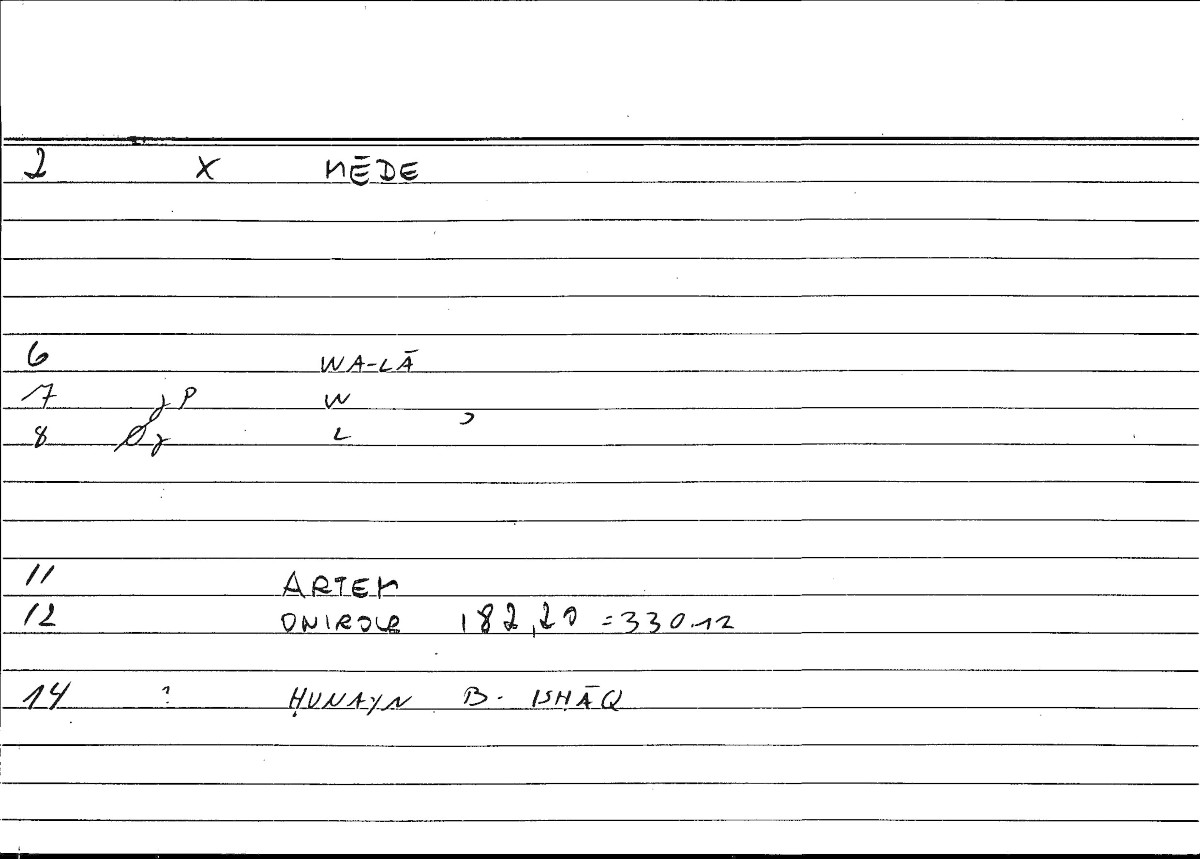 2 X MĒDE
6 WA-LĀ
7 γP W
8 Ø γ L
11 ARTEM
12 ONIROCR 182,20 = 330.12
14 ? ḤUNAYN B. ISḤĀQ